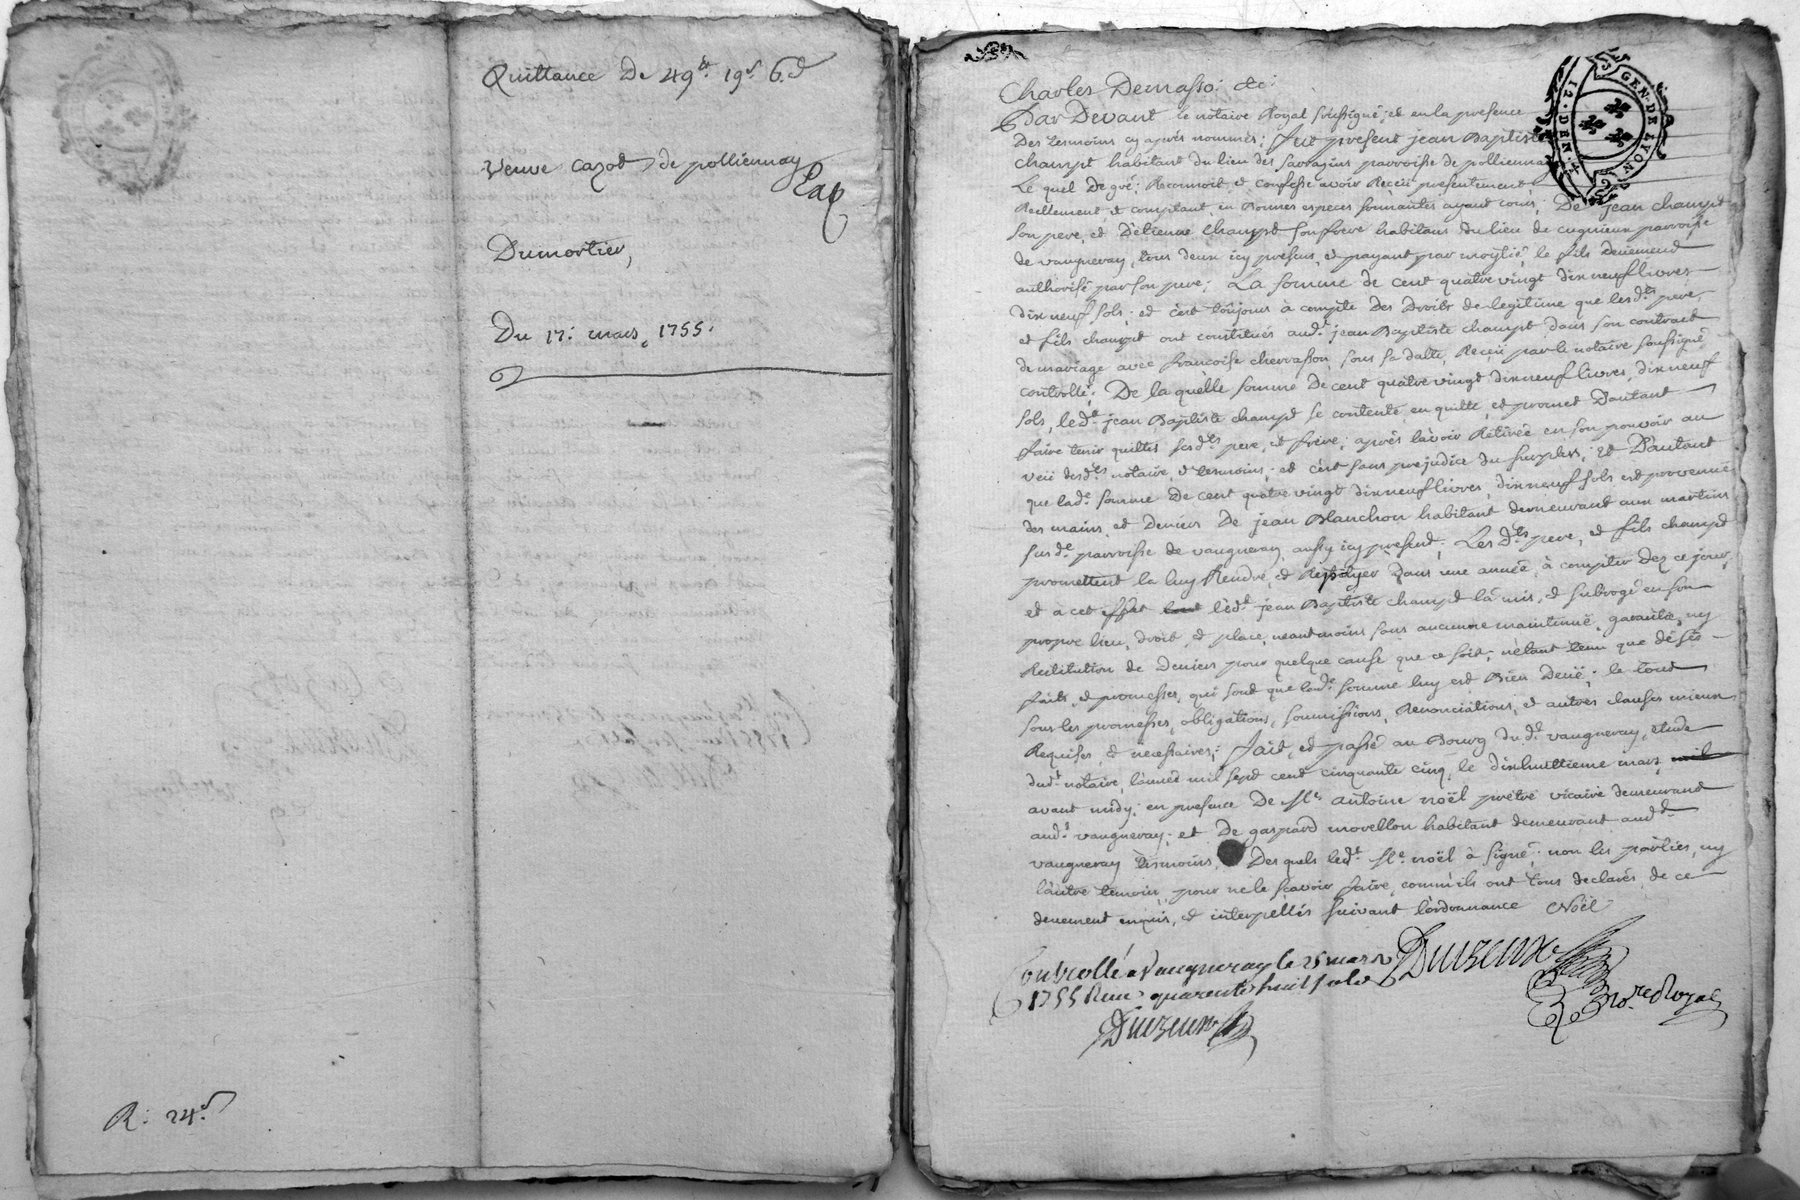 Quittance De 49lt. 19s. 6.d
veuve cazot de polliennay
Dumortier,
Du 17: mars, 1755.
R: 24s.
GEN. DE LYON
12. DEN.
Charles Demasso: &c:
Par Devant le notaire Royal soussigné; et en la presence
Des tesmoins cy après nommés; fut present jean Baptiste
champt habitant du lieu des sarrazins parroisse de polliennay
Le quel De gré; Reconnoit, et confesse avoir Receu presentement
Reellement et comptant, en Bonnes especes sonnantes ayant cours, De jean champt
son pere, et D'étienne champt son frere habitans du lieu de parroisse
de vaugneray, tous deux icy presens, et payant par moytié, le fils deuement
authorisé par son pere; La somme de cent quatre vingt dix neuf livres
dix neuf sols; et c'est toûjours à compte Des Droits de legitime que lesdts. pere,
et fils champt ont constitués audt. jean Baptiste champt dans son contract
de mariage avec francoise chervasson, sous sa datte, Receu par le notaire soussigné,
controllé; De la quelle somme De cent quatre vingt dix neuf livres, dix neuf
sols, ledt. jean Baptiste champt se contente, en quitte, et promet D'autant
faire tenir quittes sesdts. pere, et frere; après l'avoir Retirée en son pouvoir au
veü desdts. notaire, et tesmoins; et c'est sans prejudice du surplus; Et D'autant
que lade. somme De cent quatre vingt dix neuf livres, dix neuf sols est provenuë
des mains, et Deniers De jean Blanchon habitant demeurant aux martins
susde. parroisse de vaugneray, aussy icy present; Lesdts. pere, et fils champt
promettent la luy Rendre, et Repayer Dans une année, à compter dez ce jour,
et à cet effet ledt. jean Baptiste champt l'a mis, et subrogé en son
propre lieu, droit, et place, neantmoins sans aucunne maintenuë, garantie, ny
Restitution de Deniers pour quelque cause que ce soit; n'étant tenu que de ses
faits, et promesses, qui sont que lade. somme luy est Bien Deuë; le tout
sous les promesses, obligations, soumissions, Renonciations, et autres clauses mieux
Requises, et nécessaires; fait, et passé au Bourg dudt. vaugneray, étude
dudt. notaire, l'année mil sept cent cinquante cinq, le dix huittieme mars,
avant midy; en presence De Me. antoine noël prêtre vicaire demeurant
audt. vaugneray; et De gaspard morellon habitant demeurant audt.
vaugneray tesmoins, Des quels ledt. Me. noël à signé; non les parties, ny
l'autre temoin, pour ne le sçavoir faire, comm'ils ont tous declarés, de ce
deuement enquis, et interpellés suivant l'ordonnance Noël
Controllé a Vaugneray le 25 mars
1755 Reçu quarente huit sols
no.re Royal